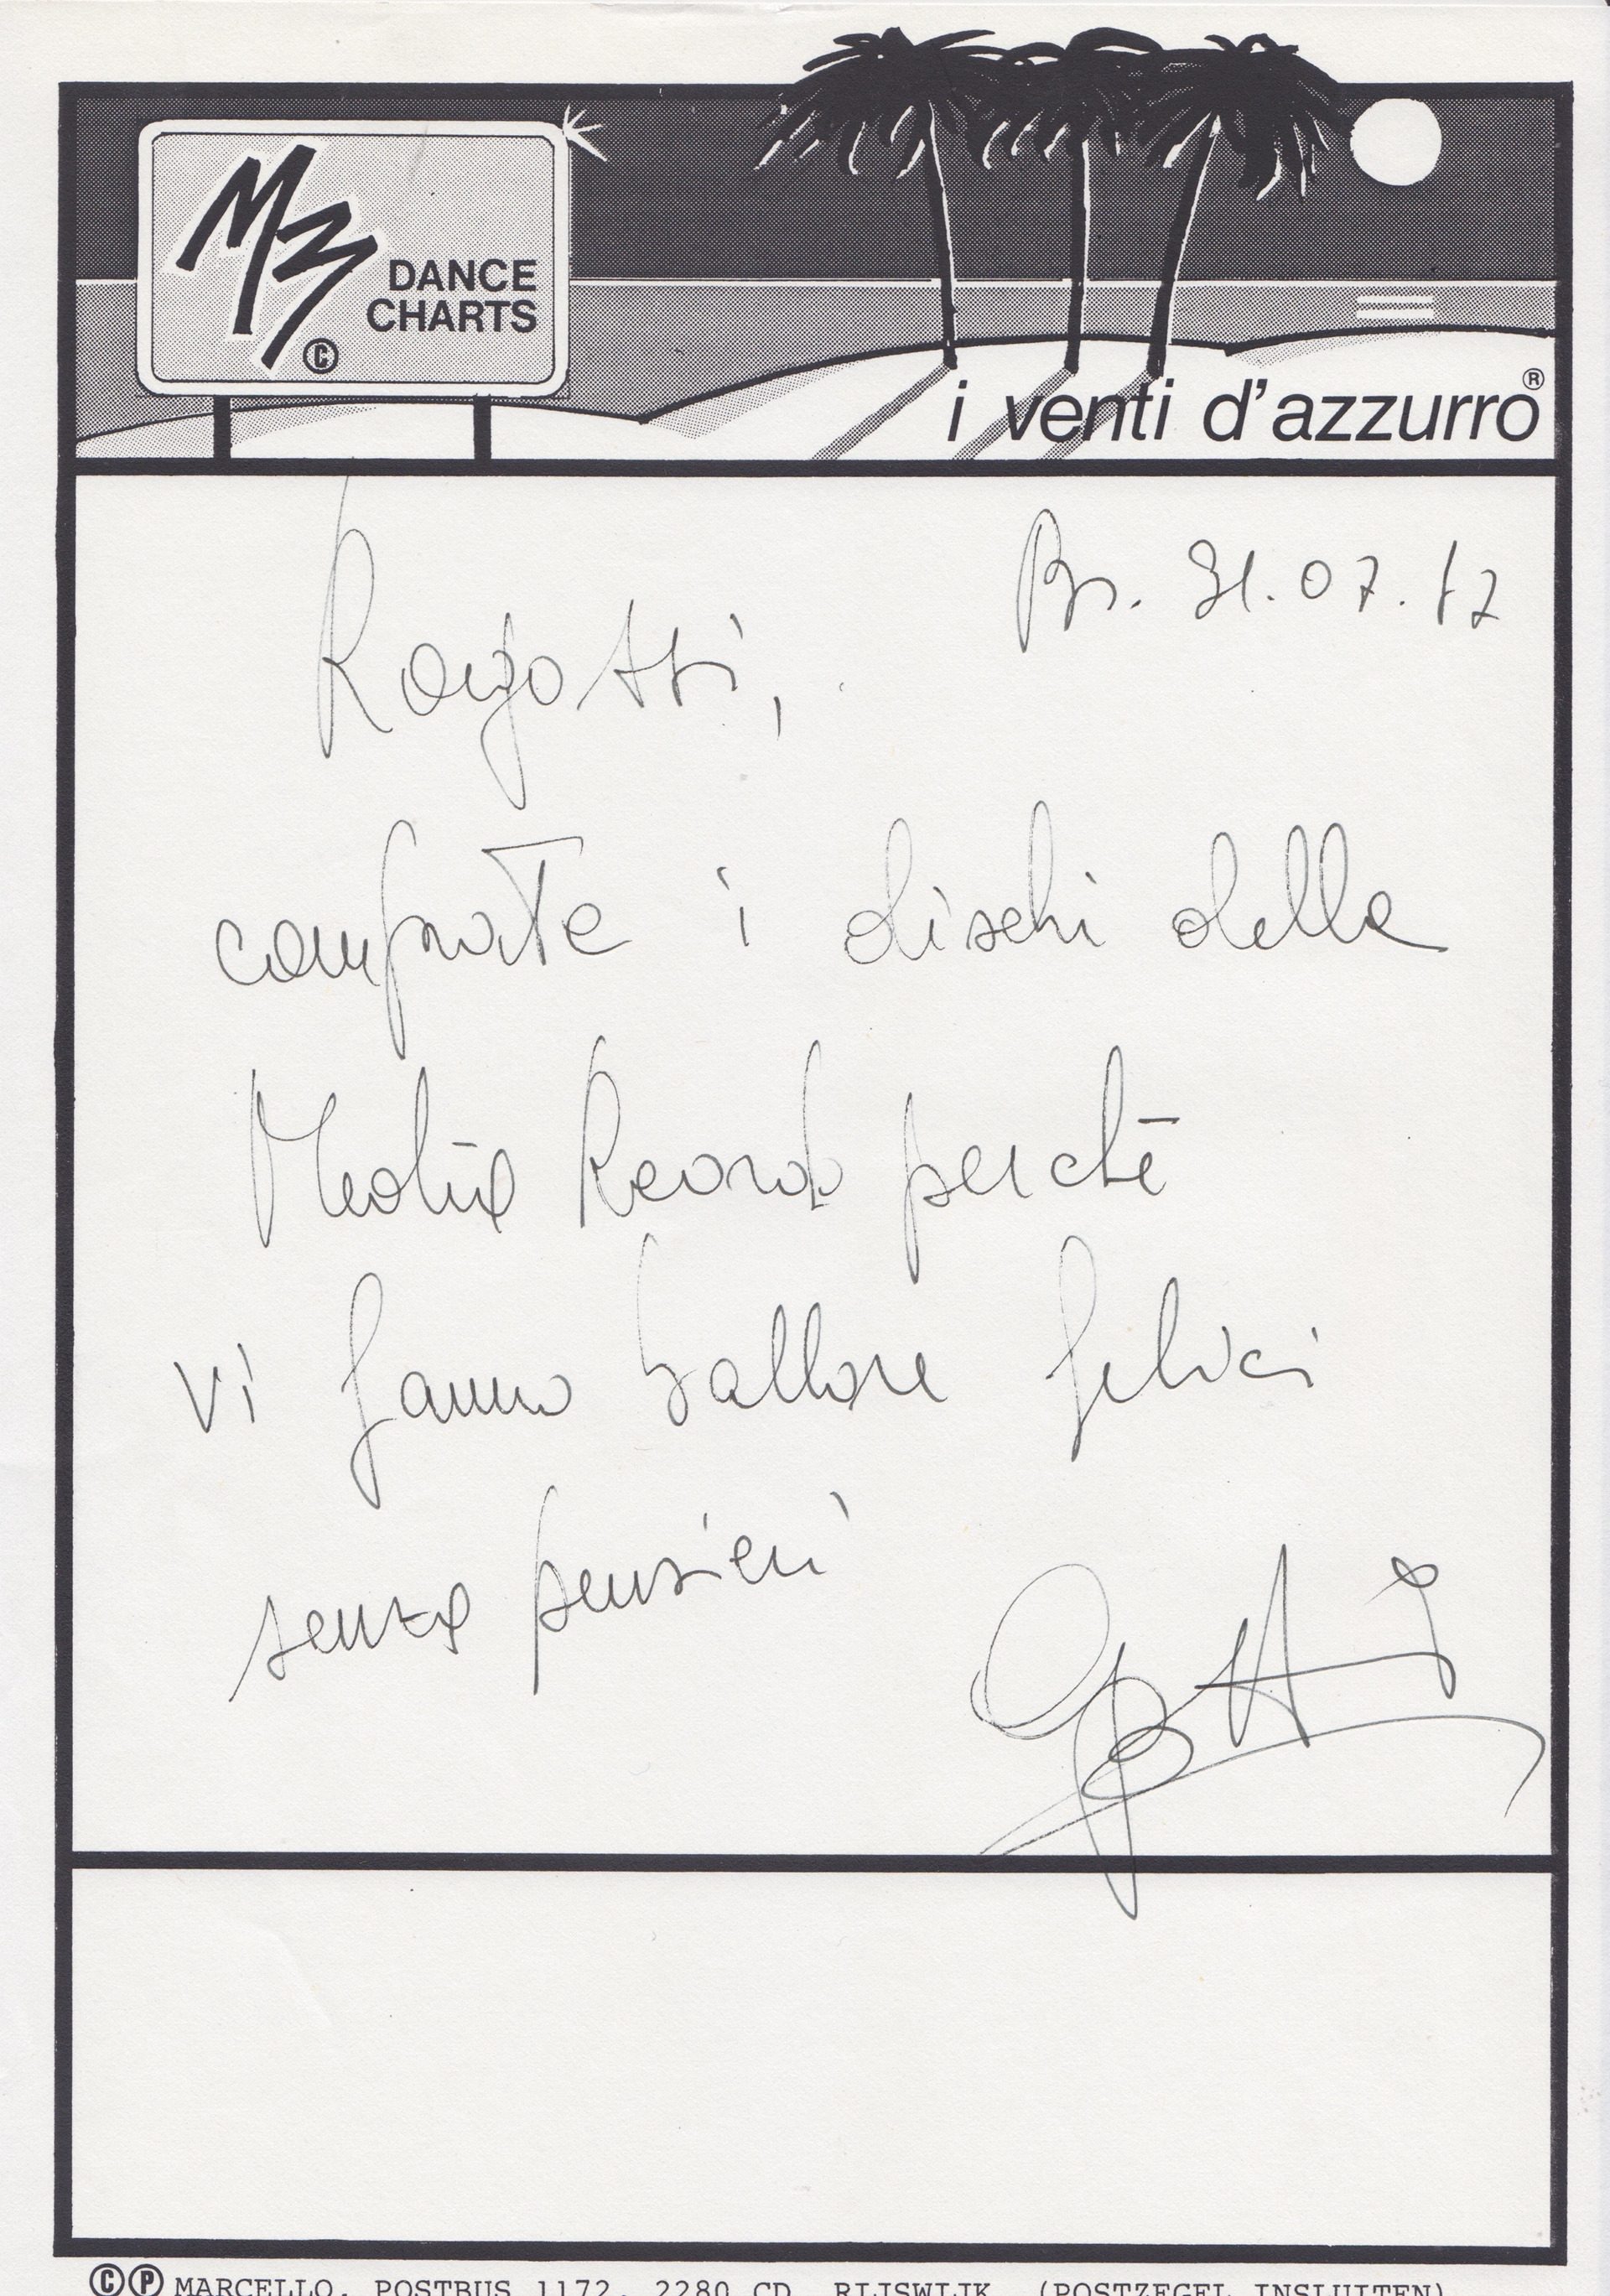 M3
DANCE
CHARTS
©
i venti d'azzurro®
Bs. 31.07.87
Ragazzi,
comprate i dischi della
Media Records perchè
vi fanno ballare felici
senza pensieri
©℗ MARCELLO, POSTBUS 1172, 2280 CD RIJSWIJK (POSTZEGEL INSLUITEN)